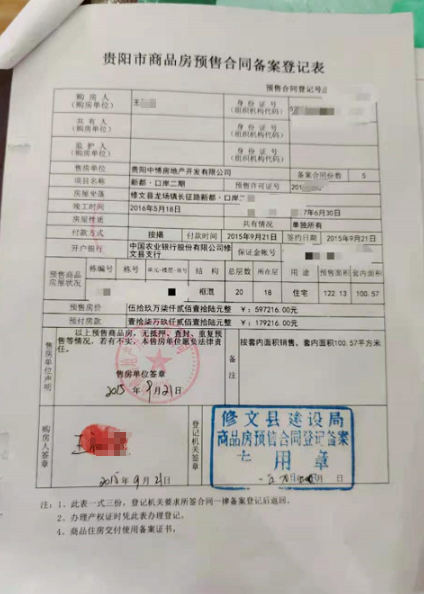 贵阳市商品房预售合同备案登记表
预售合同登记号
购房人 身份证号
(购房单位) (组织机构代码)
共有人 身份证号
(购房单位) (组织机构代码)
监护人 身份证号
(购房单位) (组织机构代码)
售房单位 贵阳中博房地产开发有限公司 备案合同份数 5
项目名称 新都·口岸二期 预售许可证号 201
房屋坐落 修文县龙场镇长征路新都·口岸二
竣工时间 2016年5月18日 7年6月30日
房屋性质 共有情况 单独所有
付款方式 按揭 付款时间 2015年9月21日 签约日期 2015年9月21日
开户银行 中国农业银行股份有限公司修文县支行 保证金帐号
预售商品房现状况 栋编号 栋号 结构 总层数 所在层 用途 预售面积 套内面积
框混 20 18 住宅 122.13 100.57
预售房价 伍拾玖万柒仟贰佰壹拾陆元整 ¥: 597216.00元
预付房款 壹拾柒万玖仟贰佰壹拾陆元整 ¥: 179216.00元
售房单位声明 以上预售商品房,无抵押、查封、重复预售等情况。若有不实,本售房单位愿负法律责任。 备注 按套内面积销售,套内面积100.57平方米
售房单位签章
2015年9月21日
购房人签章 王 登记机关签章
修文县建设局
商品房预售合同登记备案
专用章
2015年9月21日
注:1、此表一式三份,登记机关要求所签合同一律备案登记后返回。
2、办理产权证时见此表办理登记。
4、商品住房交付使用备案证书。